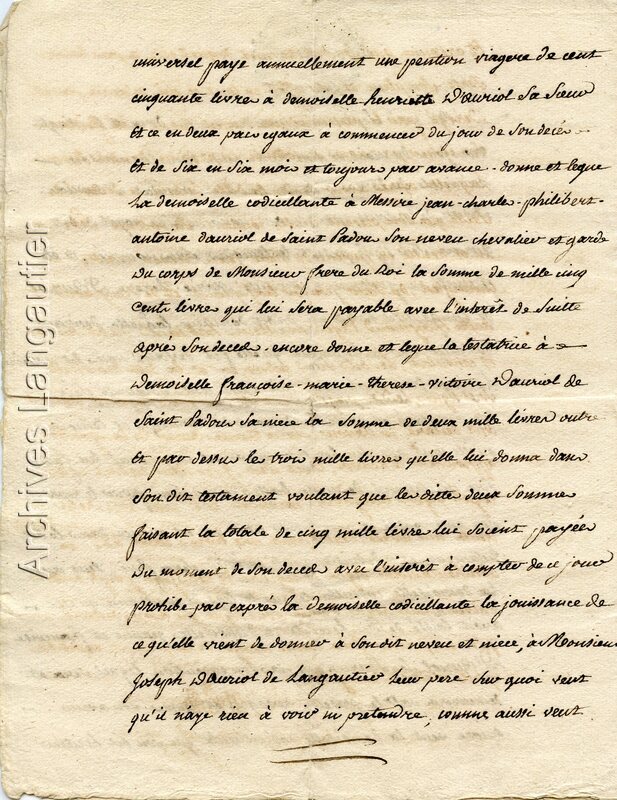 universel paye annuellement une pention viagere de cent
cinquante livre à demoiselle henriette D'auriol sa sœur
Et ce en deux pac egaux à commencer du jour de son decés
Et de six en six moi et toujours par avance - donne et legue
La demoiselle codicillante à Messire jean - charle - philibert -
antoine dauriol de Saint Padou son neveu chevalier et garde
Du corps de Monsieur frere du Roi la somme de mille cinq
Cent livre qui lui sera payable avec l'interêt de suitte
aprés son deced - encore donne et legue la testatrice à
Demoiselle françoise - marie - therese - victoire Dauriol de
Saint Padou sa niece la somme de deux mille livres outre
Et par dessu le trois mille livre qu'elle lui donna dan
Son dit testament voulant que les diete deux somme
faisant la totale de cinq mille livre lui soient payées
Du moment de son deced avec l'interêt à compter de ce jour
prohibe par exprés la demoiselle codicillante la jouissance de
ce qu'elle vient de donner à son dit neveu et niece, à Monsieur
Joseph D'auriol de Langautier leur pere sur quoi veut
qu'il n'aye rien à voir ni pretendre, comme aussi veut
Archives Langautier